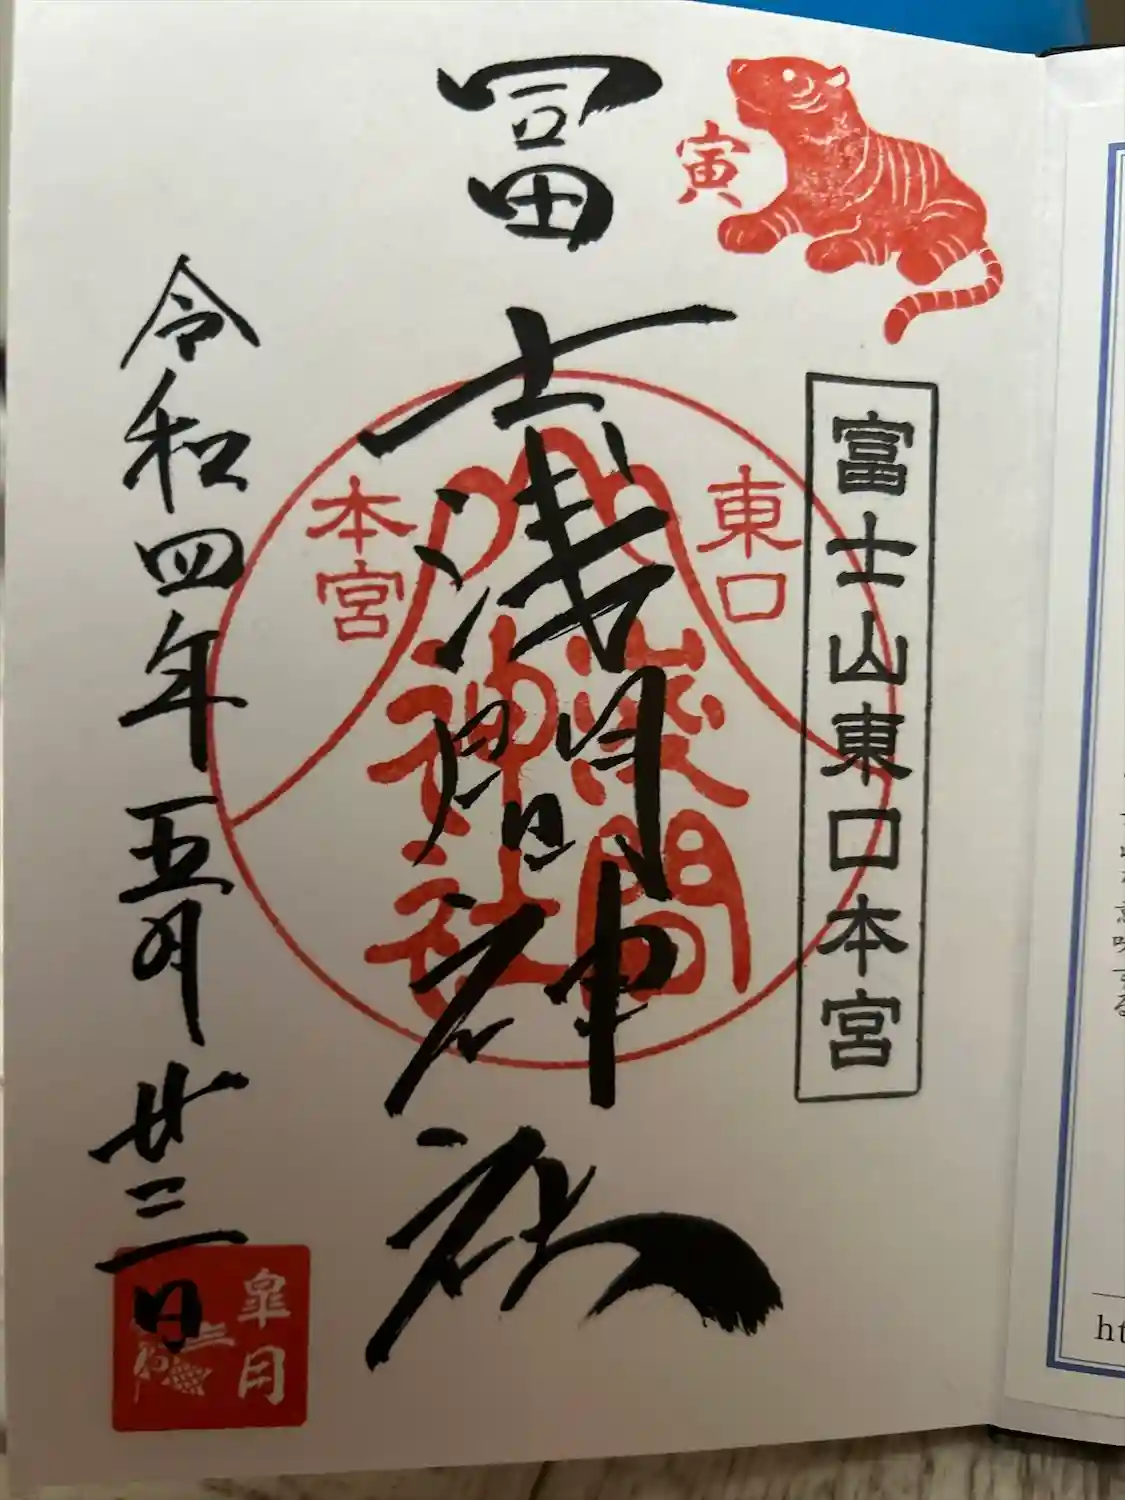 寅
富士山東口本宮
冨士浅間神社
東口
本宮
浅間
神社
令和四年五月廿三日
皐月
意味する
ht